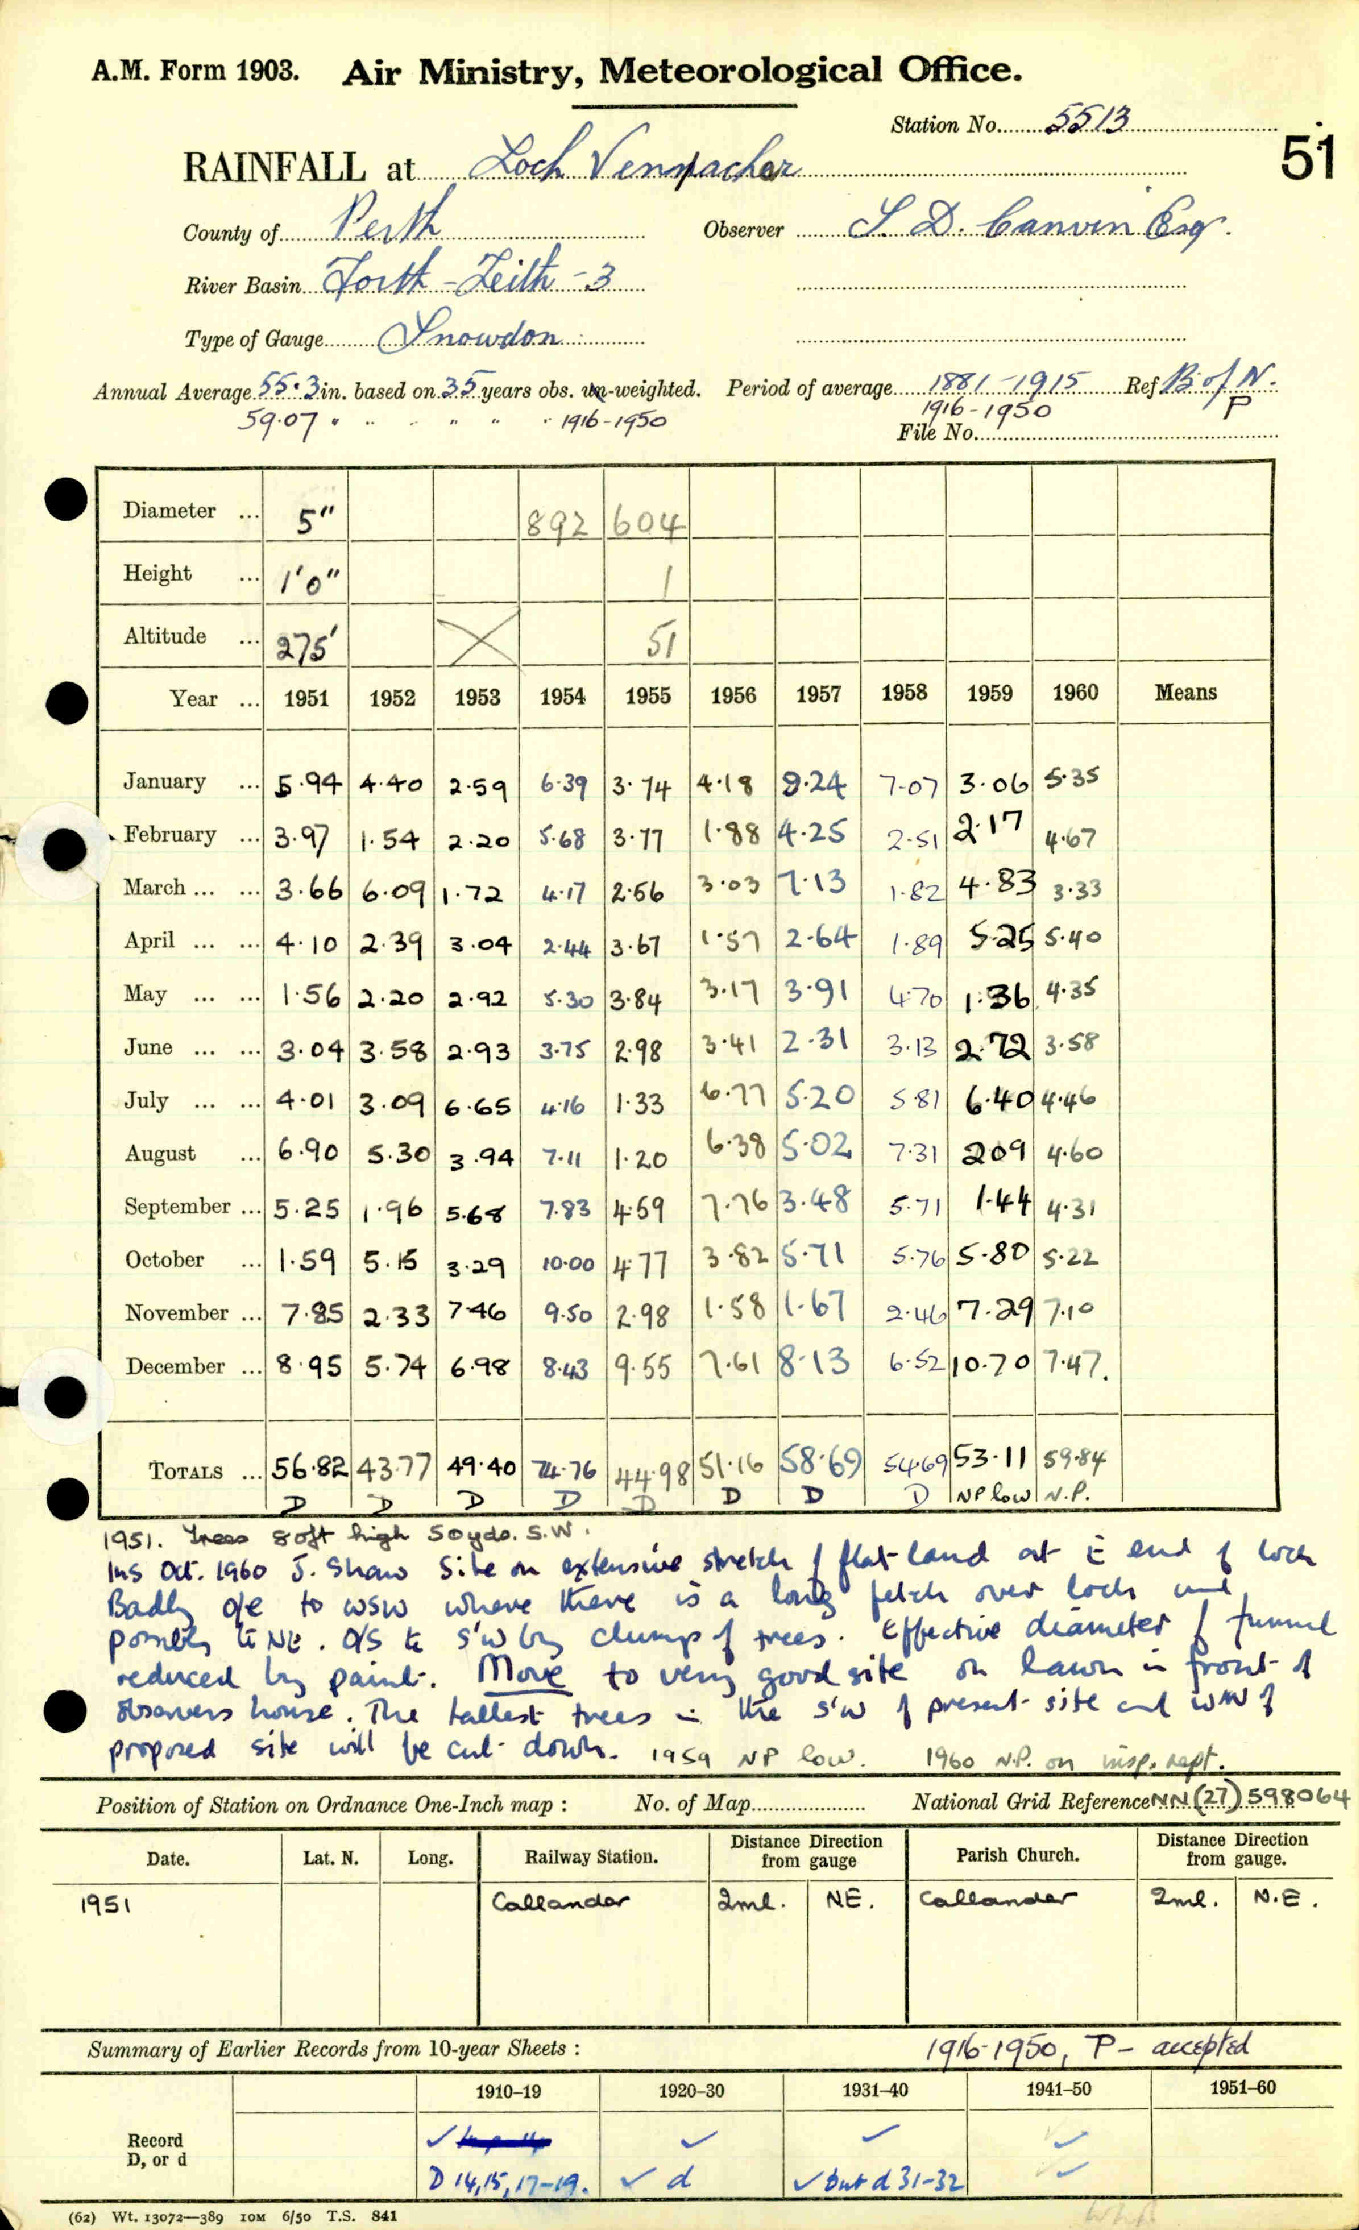 A.M. Form 1903. Air Ministry, Meteorological Office.
Station No. 5513
51
RAINFALL at Loch Vennachar
County of Perth Observer S. D. Canvin Esq.
River Basin Forth-Teith-3
Type of Gauge Snowdon
Annual Average 55.3 in. based on 35 years obs. un-weighted. Period of average 1881-1915 Ref B of N.
59.07 " " " " " 1916-1950 1916-1950 P
File No.
Diameter ... 5" 892 604
Height ... 1'0" 1
Altitude ... 275' 51
Year ... 1951 1952 1953 1954 1955 1956 1957 1958 1959 1960 Means
January ... 5.94 4.40 2.59 6.39 3.74 4.18 9.24 7.07 3.06 5.35
February ... 3.97 1.54 2.20 5.68 3.77 1.88 4.25 2.51 2.17 4.67
March ... ... 3.66 6.09 1.72 4.17 2.56 3.03 7.13 1.82 4.83 3.33
April ... ... 4.10 2.39 3.04 2.44 3.67 1.57 2.64 1.89 5.25 5.40
May ... ... 1.56 2.20 2.92 5.30 3.84 3.17 3.91 4.70 1.36 4.35
June ... ... 3.04 3.58 2.93 3.75 2.98 3.41 2.31 3.13 2.72 3.58
July ... ... 4.01 3.09 6.65 4.16 1.33 6.77 5.20 5.81 6.40 4.46
August ... 6.90 5.30 3.94 7.11 1.20 6.38 5.02 7.31 209 4.60
September ... 5.25 1.96 5.68 7.83 4.59 7.76 3.48 5.71 1.44 4.31
October ... 1.59 5.15 3.29 10.00 4.77 3.82 5.71 5.76 5.80 5.22
November ... 7.85 2.33 7.46 9.50 2.98 1.58 1.67 2.46 7.29 7.10
December ... 8.95 5.74 6.98 8.43 9.55 7.61 8.13 6.52 10.70 7.47.
TOTALS ... 56.82 43.77 49.40 74.76 44.98 51.16 58.69 54.69 53.11 59.84
D D D D D D D D NP low N.P.
1951. Trees 80ft high 50yds. S.W.
Ins Oct. 1960 J. Shaw Site on extensive stretch of flat land at E end of loch
Badly o/e to WSW where there is a long fetch over loch and
possibly to NE. O/S to S'W by clump of trees. Effective diameter of funnel
reduced by paint. Move to very good site on lawn in front of
observers house. The tallest trees in the S'W of present site and WNW of
proposed site will be cut down. 1959 NP low. 1960 N.P. on insp. rept.
Position of Station on Ordnance One-Inch map : No. of Map National Grid Reference NN(27)598064
Date. Lat. N. Long. Railway Station. Distance Direction from gauge Parish Church. Distance Direction from gauge.
1951 Callander 2ml. NE. Callander 2ml. N.E.
Summary of Earlier Records from 10-year Sheets : 1916-1950, P - accepted
1910–19 1920–30 1931–40 1941–50 1951–60
Record ✓ ✓ ✓ ✓
D, or d D 14,15,17-19. ✓ d ✓ but d 31-32 ✓
(62) Wt. 13072—389 10M 6/50 T.S. 841